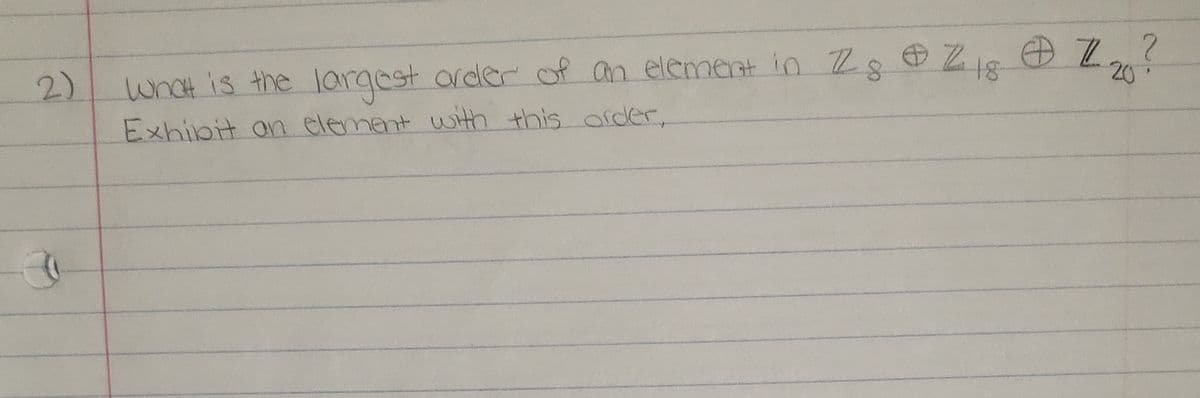 2) What is the largest order of an element in ℤ₈ ⊕ ℤ₁₈ ⊕ ℤ₂₀?
Exhibit an element with this order,